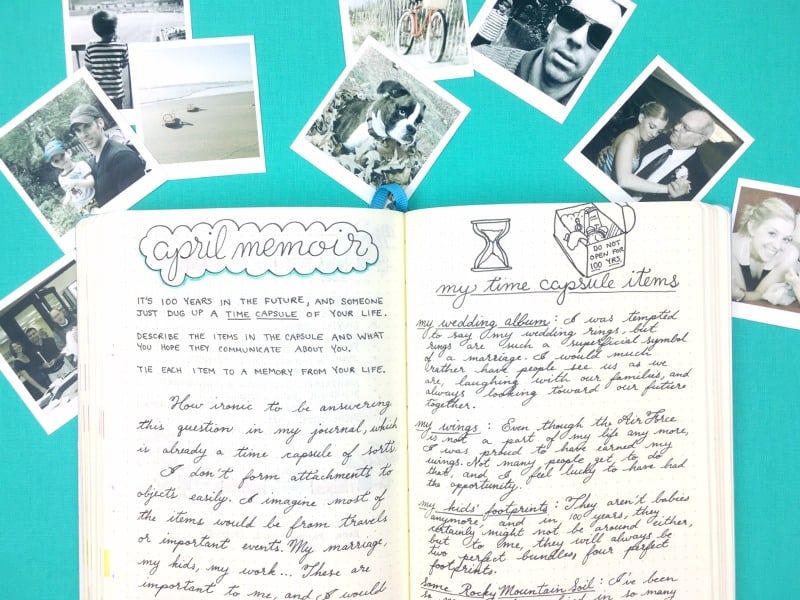 april memoir
IT'S 100 YEARS IN THE FUTURE, AND SOMEONE
JUST DUG UP A TIME CAPSULE OF YOUR LIFE.
DESCRIBE THE ITEMS IN THE CAPSULE AND WHAT
YOU HOPE THEY COMMUNICATE ABOUT YOU.
TIE EACH ITEM TO A MEMORY FROM YOUR LIFE.
How ironic to be answering
this question in my journal, which
is already a time capsule of sorts.
I don't form attachments to
objects easily. I imagine most of
the items would be from travels
or important events. My marriage,
my kids, my work... These are
important to me, and I would
DO NOT
OPEN FOR
100 YRS.
my time capsule items
my wedding album: I was tempted
to say my wedding rings, but
rings are such a superficial symbol
of a marriage. I would much
rather have people see us as we
are, laughing with our families, and
always looking toward our future
together.
my wings: Even though the Air Force
is not a part of my life any more,
I was proud to have earned my
wings. Not many people get to do
that, and I feel lucky to have had
the opportunity.
my kids' footprints: They aren't babies
anymore, and in 100 years, they
certainly might not be around either,
but to me, they will always be
two perfect bundles, four perfect
footprints.
Some Rocky Mountain Soil: I've been
so many in so many